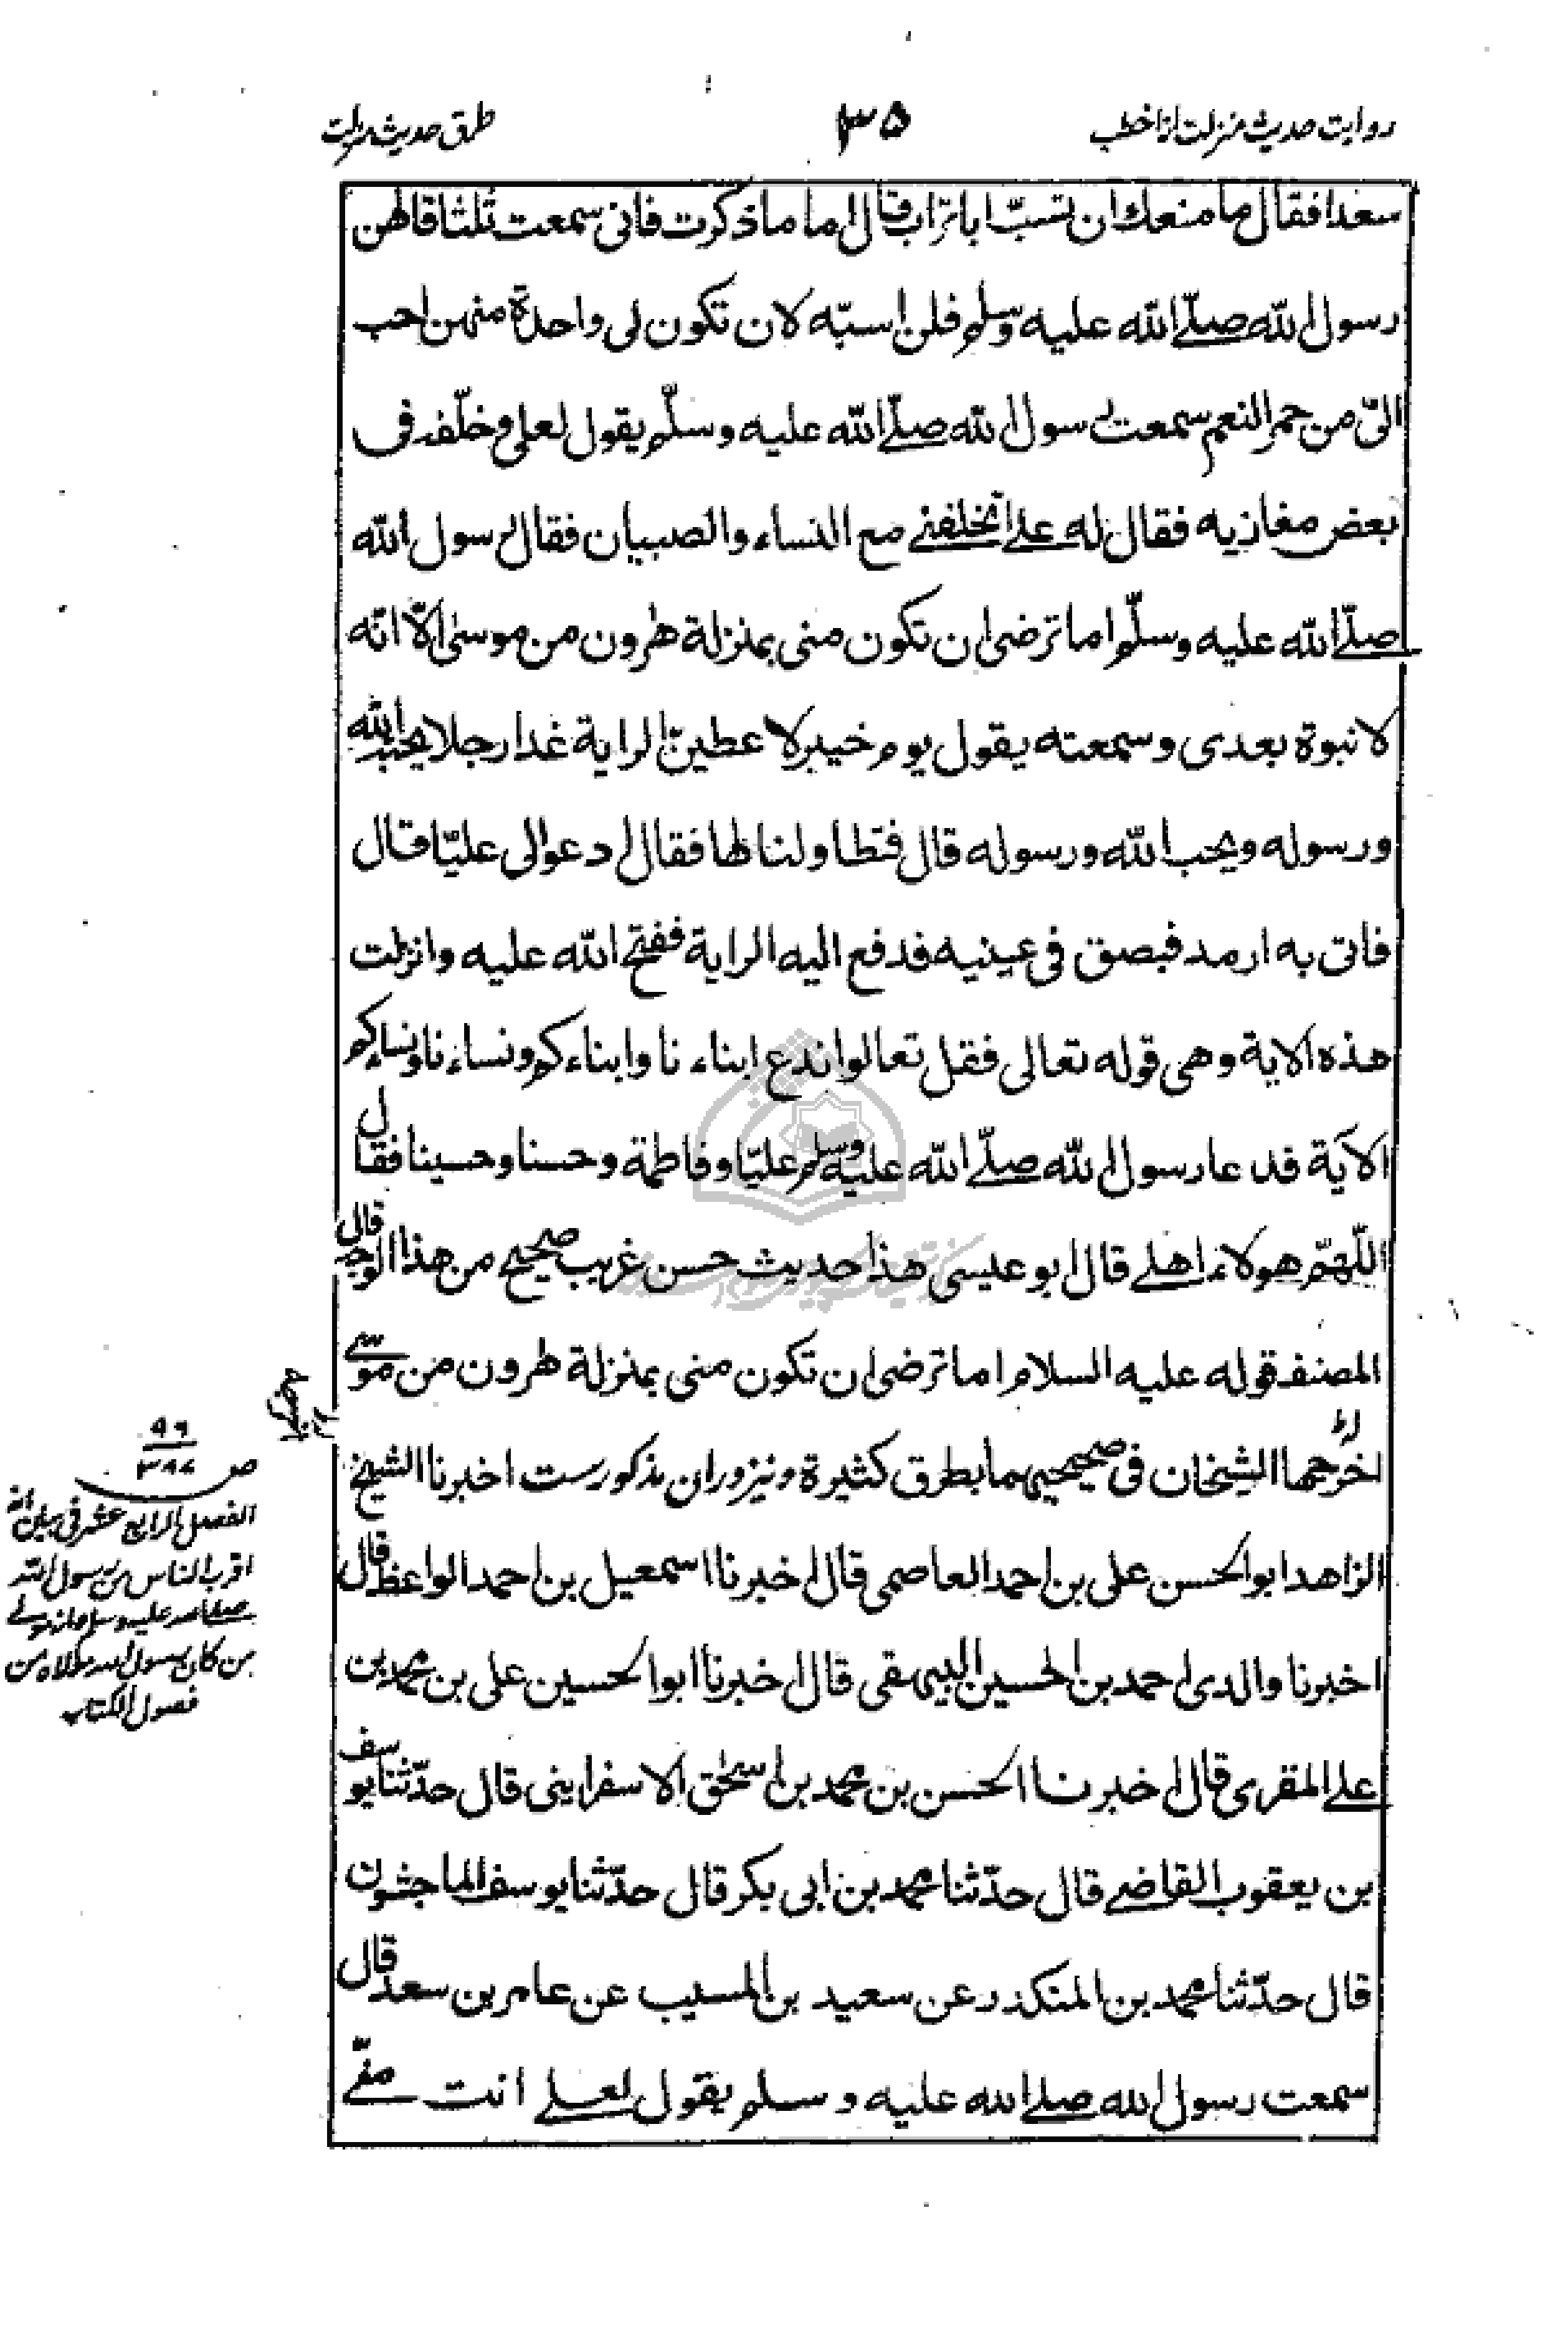 روايت حديث منزلت از اخطب
١٣٥
طرق حديث منزلت
سعدا فقال ما منعك ان تسبّ ابا تراب قال اما ما ذكرت فانى سمعت ثلثا قالهن
رسول الله صلّے الله عليه وسلم فلن اسبّه لان تكون لى واحدة منهن احب
الىّ من حمر النعم سمعت رسول الله صلّے الله عليه وسلّم يقول لعلى وخلّفه فى
بعض مغازيه فقال له علے اتخلفنے مع النساء والصبيان فقال رسول الله
صلّے الله عليه وسلّم اما ترضى ان تكون منى بمنزلة هٰرون من موسىٰ الّا انّه
لا نبوة بعدى وسمعته يقول يوم خيبر لاعطينّ الراية غدا رجلا يحبّ الله
ورسوله ويحب الله ورسوله قال فتطاولنا لها فقال ادعوا لى عليّا قال
فاتى به ارمد فبصق فى عينيه فدفع اليه الراية ففتح الله عليه وانزلت
هذه الاية وهى قوله تعالى فقل تعالوا ندع ابناءنا وابناءكم ونساءنا ونساءكم
الآية فدعا رسول الله صلّے الله عليه وسلم عليّا وفاطمة وحسنا وحسينا فقال
اللّٰهمّ هولاء اهلے قال ابو عيسى هذا حديث حسن غريب صحيح من هذا الوجه قال
المصنف قوله عليه السلام اما ترضى ان تكون منى بمنزلة هٰرون من موسٰے
اخرجها الشيخان فى صحيحيهما بطرق كثيرة ونيز دران مذكورست اخبرنا الشيخ
الزاهد ابو الحسن على بن احمد العاصمى قال اخبرنا اسمعيل بن احمد الواعظ قال
اخبرنا والدى احمد بن الحسين البيهقى قال اخبرنا ابو الحسين على بن محمد بن
علے المقرى قال اخبرنا الحسن بن محمد بن اسحٰق الاسفراينى قال حدّثنا يوسف
بن يعقوب القاضے قال حدّثنا محمد بن ابى بكر قال حدّثنا يوسف الماجشون
قال حدّثنا محمد بن المنكدر عن سعيد بن المسيب عن عامر بن سعد قال
سمعت رسول الله صلے الله عليه وسلم يقول لعلے انت منّے
ص
الفصل الرابع عشر فى بيان انه
اقرب الناس من رسول الله
صلے الله عليه وسلم وانه مولے
من كان رسول الله مولاه من
فصول الكتاب